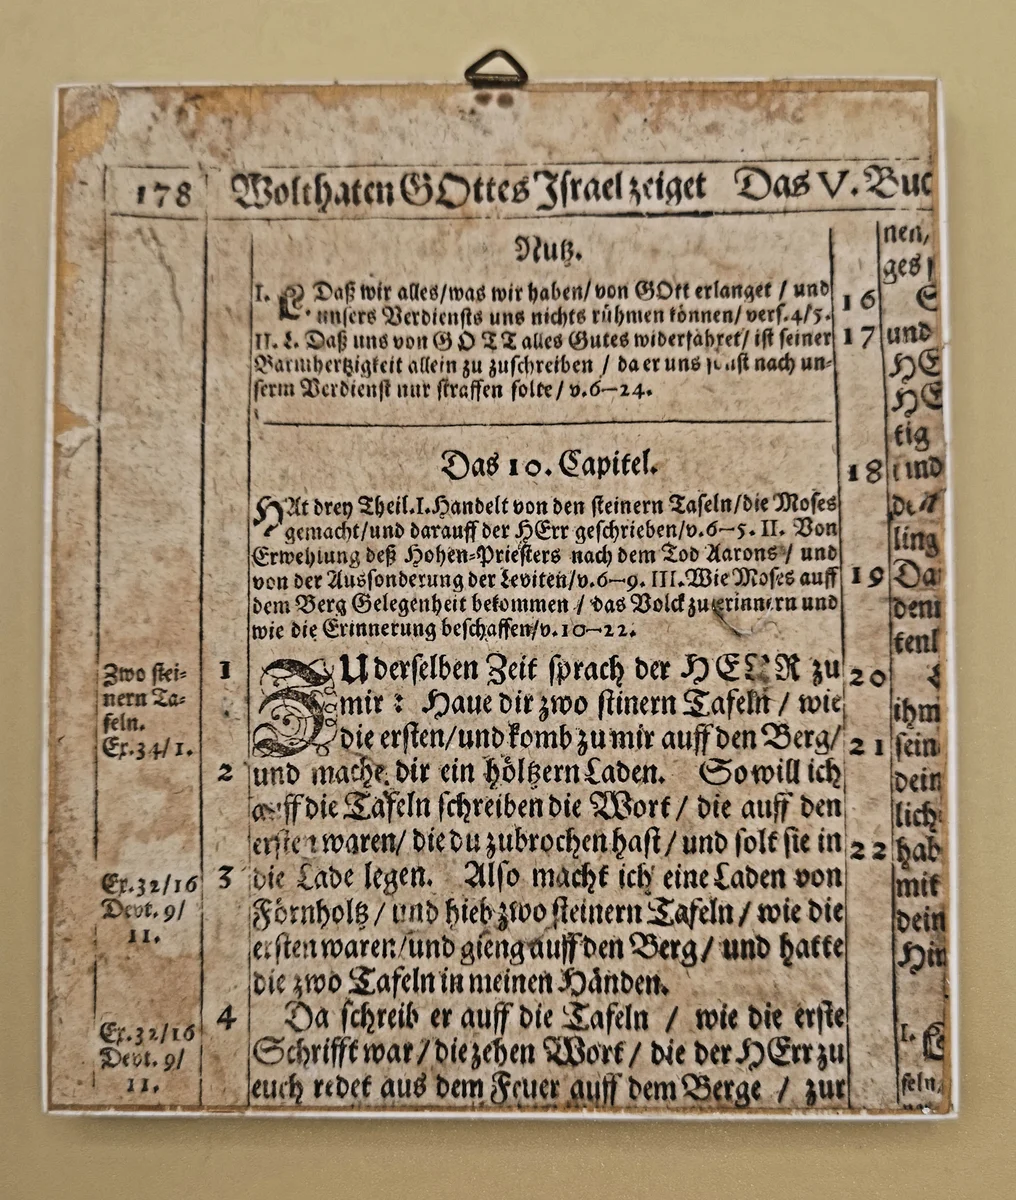 178 Wolthaten GOttes Israel zeiget Das V. Buc
Nutz.
I. L. Daß wir alles/was wir haben/von GOtt erlanget / und
unsers Verdiensts uns nichts rühmen können/vers.4/5.
II. L. Daß uns von GOTT alles Gutes widerfähret/ ist seiner
Barmhertzigkeit allein zu zuschreiben / da er uns sonst nach un-
serm Verdienst nur straffen solte/v.6-24.
Das 10. Capitel.
HAt drey Theil.I.Handelt von den steinern Tafeln/die Moses
gemacht/und darauff der HErr geschrieben/v.6-5. II. Von
Erwehlung deß Hohen-Priesters nach dem Tod Aarons/ und
von der Aussonderung der Leviten/v.6-9. III.Wie Moses auff
dem Berg Gelegenheit bekommen / das Volck zu erinnern und
wie die Erinnerung beschaffen/v.10-22.
1 ZU derselben Zeit sprach der HERR zu
mir : Haue dir zwo stinern Tafeln / wie
die ersten/und komb zu mir auff den Berg/
2 und mache dir ein höltzern Laden. So will ich
auff die Tafeln schreiben die Wort / die auff den
ersten waren/ die du zubrochen hast/ und solt sie in
3 die Lade legen. Also macht ich eine Laden von
Förnholtz / und hieb zwo steinern Tafeln / wie die
ersten waren/und gieng auff den Berg/ und hatte
die zwo Tafeln in meinen Händen.
4 Da schreib er auff die Tafeln / wie die erste
Schrifft war/die zehen Wort/ die der HErr zu
euch redet aus dem Feuer auff dem Berge / zur
Zwo stei-
nern Ta-
feln.
Ex.34/1.
Ex.32/16
Devt. 9/
11.
Ex.32/16
Devt. 9/
11.
nen,
ges
16
17 und
HE
HE
tig
18 und
ling
19 Da
dem
tenl
20
ihm
21 sein
dein
lich
22 hab
mit
dein
Him
I. L
feln,